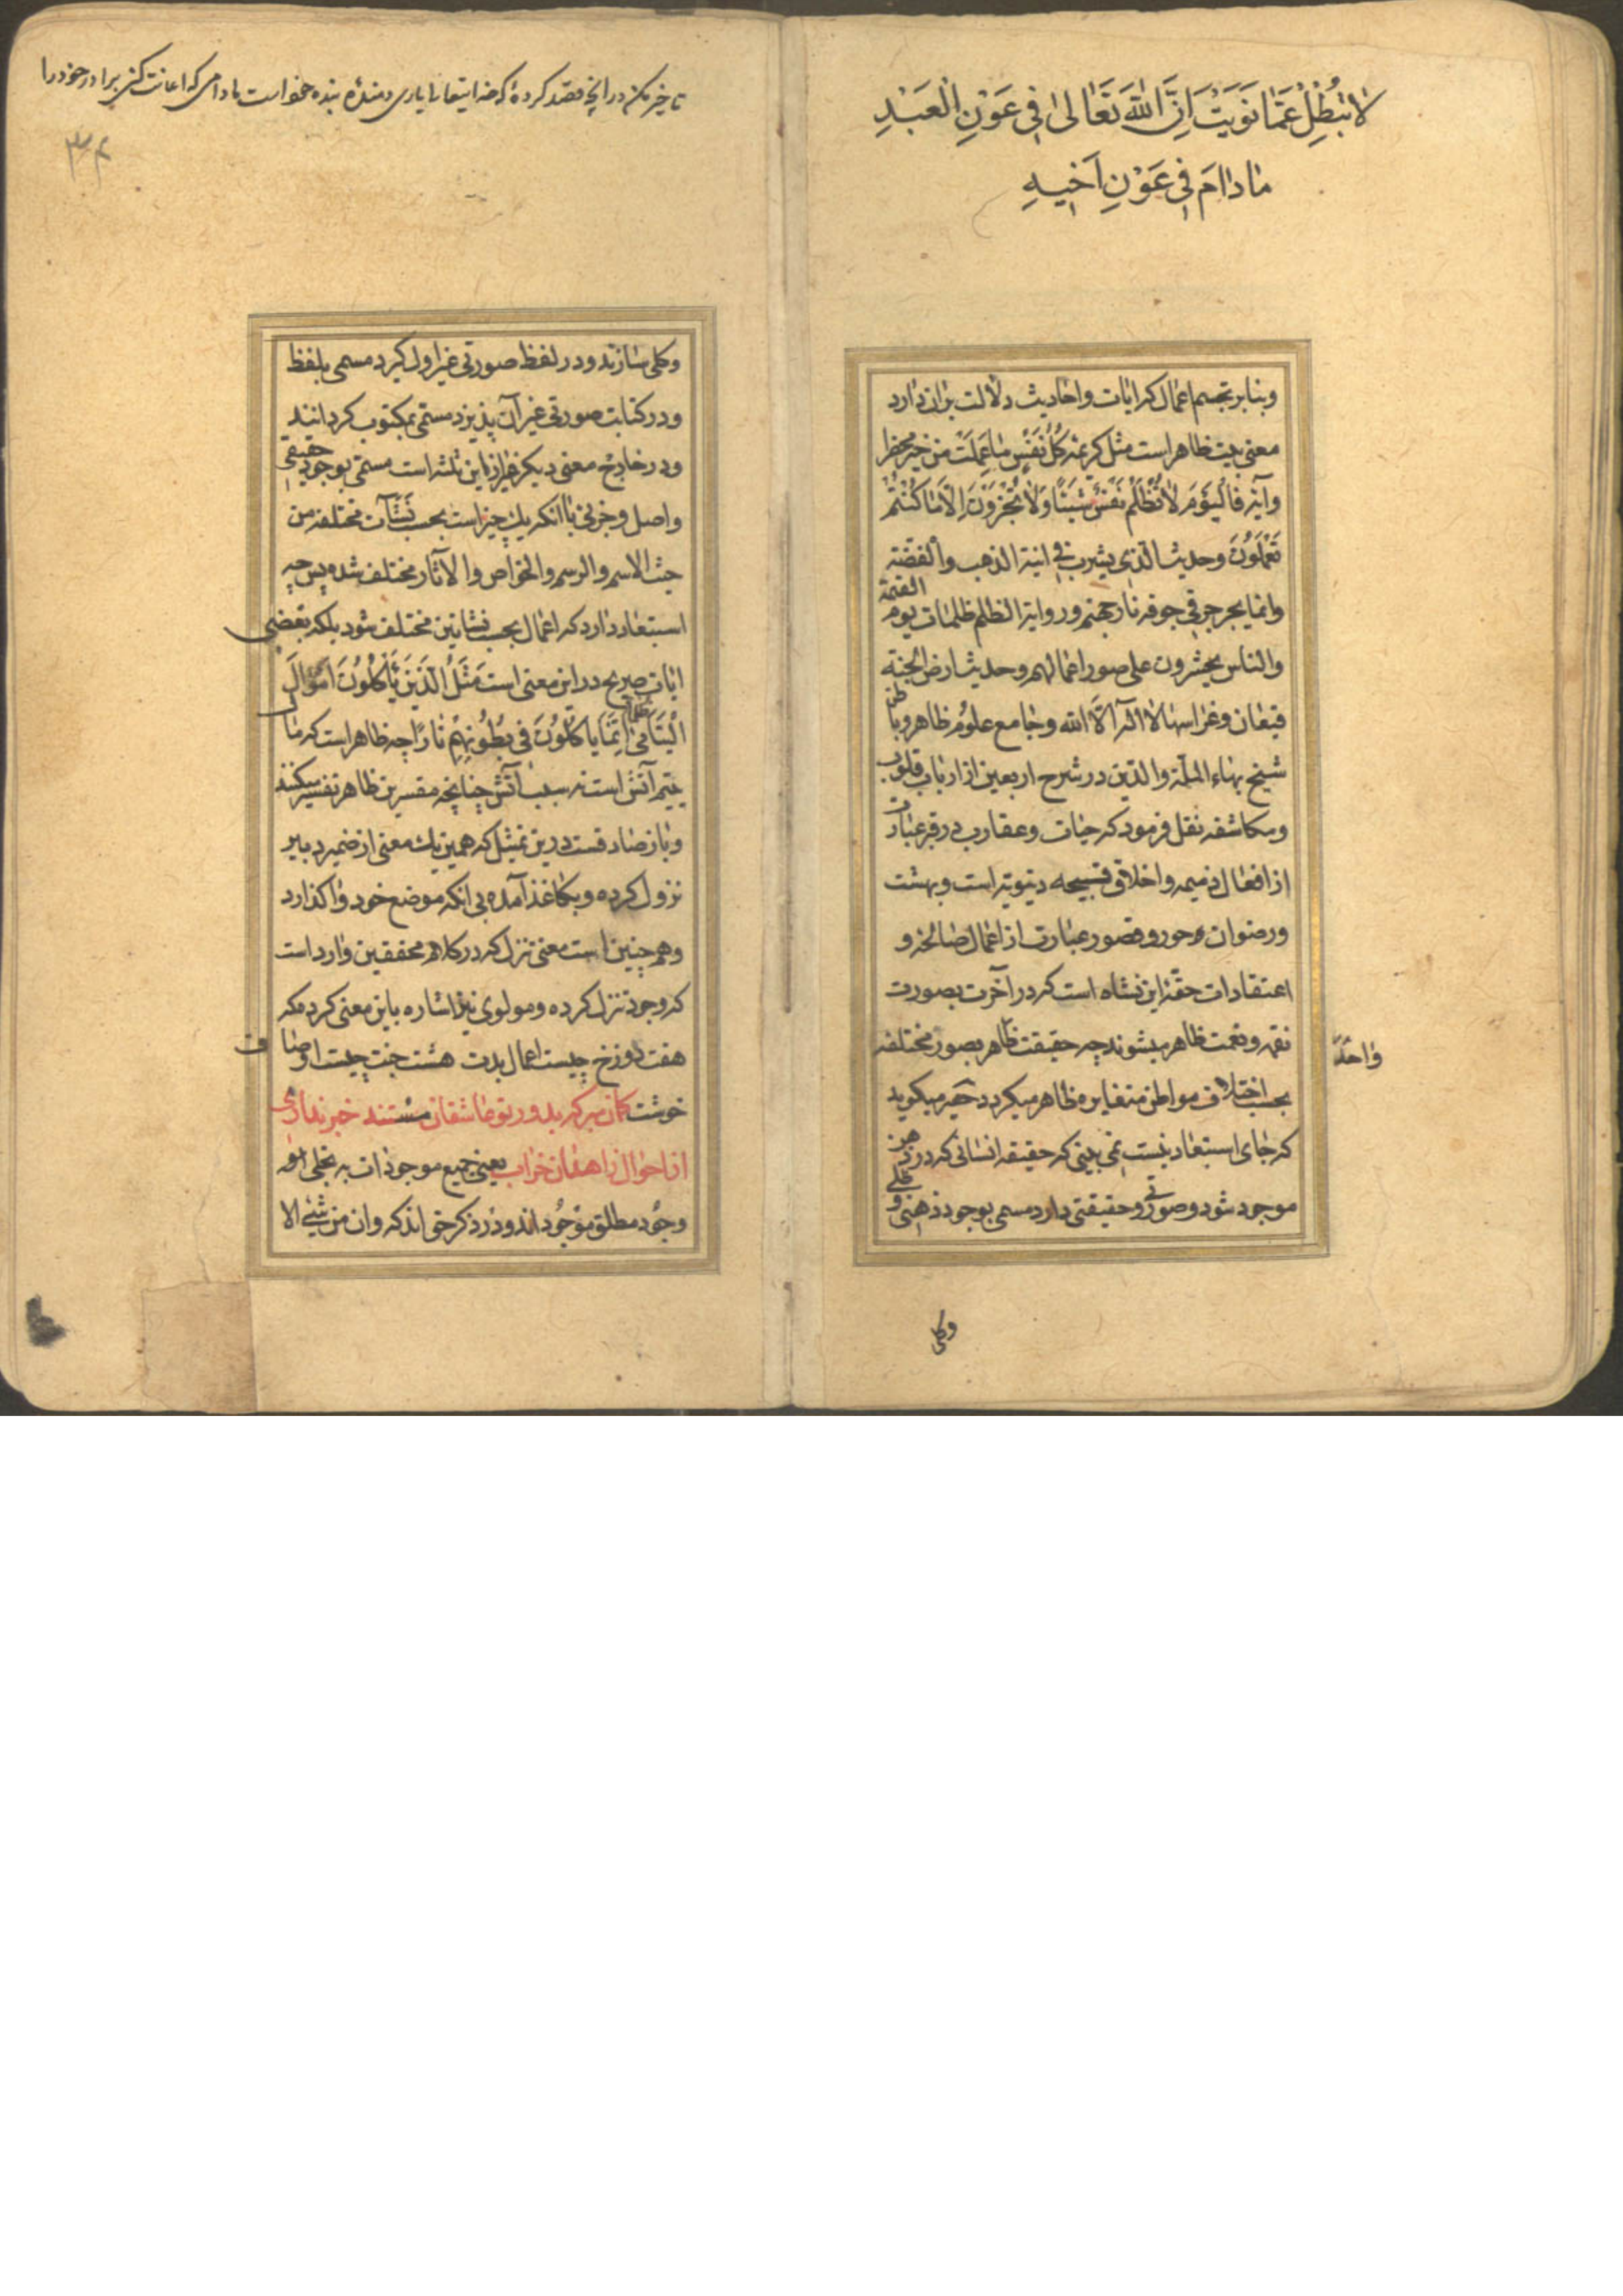 لا تبطل عما نويت ان الله تعالى فى عون العبد
مادام فى عون اخيه
وبنابر تجسم اعمال كه ايات واحاديث دلالت بران دارد
معنى بيت ظاهر است مثل كريمه كُلُّ نَفْسٍ مٰا عَمِلَتْ مِنْ خَيْرٍ مُحْضَرًا
وآيه فَالْيَوْمَ لاٰ تُظْلَمُ نَفْسٌ شَيْئًا وَلاٰ تُجْزَوْنَ اِلاّٰ مٰا كُنْتُمْ
تَعْمَلُونَ وحديث الذى يشرب فى انية الذهب والفضة
وانما يجرجر فى جوفه نار جهنم ورواية الظلم ظلمات يوم القيمة
والناس يحشرون على صور اعمالهم وحديث ارض الجنة
قيعان وغراسها لا اله الا الله وجامع علوم ظاهر وباطن
شيخ بهاء الملة والدين در شرح اربعين از ارباب قلوب
ومكاشفه نقل فرمود كه حيات وعقارب در قبر عبارت
از افعال ذميمه واخلاق قبيحه دنيويه است وبهشت
ورضوان وحور وقصور عبارت از اعمال صالحه و
اعتقادات حقه اين نشاه است كه در آخرت بصورت
نقمه ونعمت ظاهر ميشوند چه حقيقت ظاهر بصور مختلفه
واحدة
بحسب اختلاف مواطن متغايره ظاهر ميكردد حقير ميكويد
كه جاى استبعاد نيست نمى بينى كه حقيقه انسانى كه در ذهن
موجود شود وصورتى وحقيقتى دارد مسمى بوجود ذهنى و علمى
وكلى
تاخير مكن در انچه قصد كردهٔ كه خدايتعالى يارى دهندهٔ بنده خود است مادامى كه اعانت كنى برادر خود را
٣٤
وكلى سازند ودر لفظ صورتى غير اول كيرد مسمى بلفظ
ودر كتابت صورتى غير آن پذيرد مسمى بمكتوب كردانند
ودر خارج معنى ديكر غير از اين ثلثه است مسمى بوجود حقيقى
واصل وجزئى با انكه يك چيز است بحسب نشآت مختلفه من
حيث الاسم والرسم والخواص والآثار مختلف شده پس چه
استبعاد دارد كه اعمال بحسب نشاتين مختلف شود بلكه بعضى
ايات صريح در اين معنى است مَثَلُ الَّذينَ يَأْكُلُونَ اَمْوٰالَ
الْيَتٰامىٰ ظلماً اِنَّمٰا يَأْكُلُونَ فى بُطُونِهِمْ نٰارًا چه ظاهر است كه مال
يتيم آتش است نه سبب آتش چنانچه مفسرين ظاهر تفسير ميكنند
وباز صادقست درين تمثيل كه همين يك معنى از ضمير دبير
نزول كرده وبكاغذ آمده بى انكه موضع خود واكذارد
وهم چنين است معنى تنزل كه در كلام محققين وارد است
كه وجود تنزل كرده ومولوى نيز اشاره باين معنى كرده كه
هفت دوزخ چيست اعمال بدت هشت جنت چيست اوصاف
خوشت كان مير كه بدور تو عاشقان مستند خبر ندارى
از احوال زاهدان خراب يعنى جميع موجودات به تجلى او
وجود مطلق موجود اند ودر ذكر حق اند كه وان من شئ الا